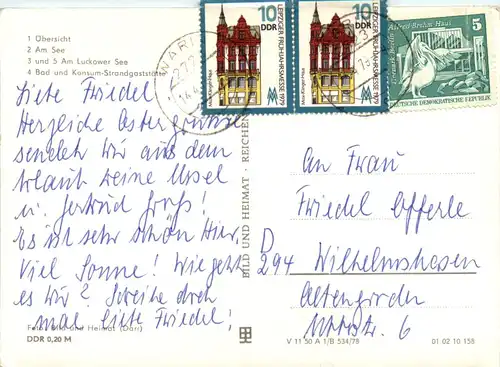 1 Übersicht
2 Am See
3 und 5 Am Luckower See
4 Bad und Konsum-Strandgaststätte
10
DDR
LEIPZIGER FRÜHJAHRSMESSE 1979
10
DDR
LEIPZIGER FRÜHJAHRSMESSE 1979
Alfred Brehm Haus
Tierpark Berlin
5
DEUTSCHE DEMOKRATISCHE REPUBLIK
Liebe Friedel
Herzliche Ostergrüsse
sendet wir aus dem
Urlaub Heine Ursel
u. Gertrud Groß!
Es ist sehr schön Hier,
Viel Sonne! Wie geht
es Wir? Schreibe doch
mal liebe Friedel!
BILD UND HEIMAT · REICHEN
An Frau
Friedel Efferle
D
294 Wilhelmshaven
Altengroden
6
Foto: Bild und Heimat (Darr)
DDR 0,20 M
V 11 50 A 1/B 534/78
01 02 10 158